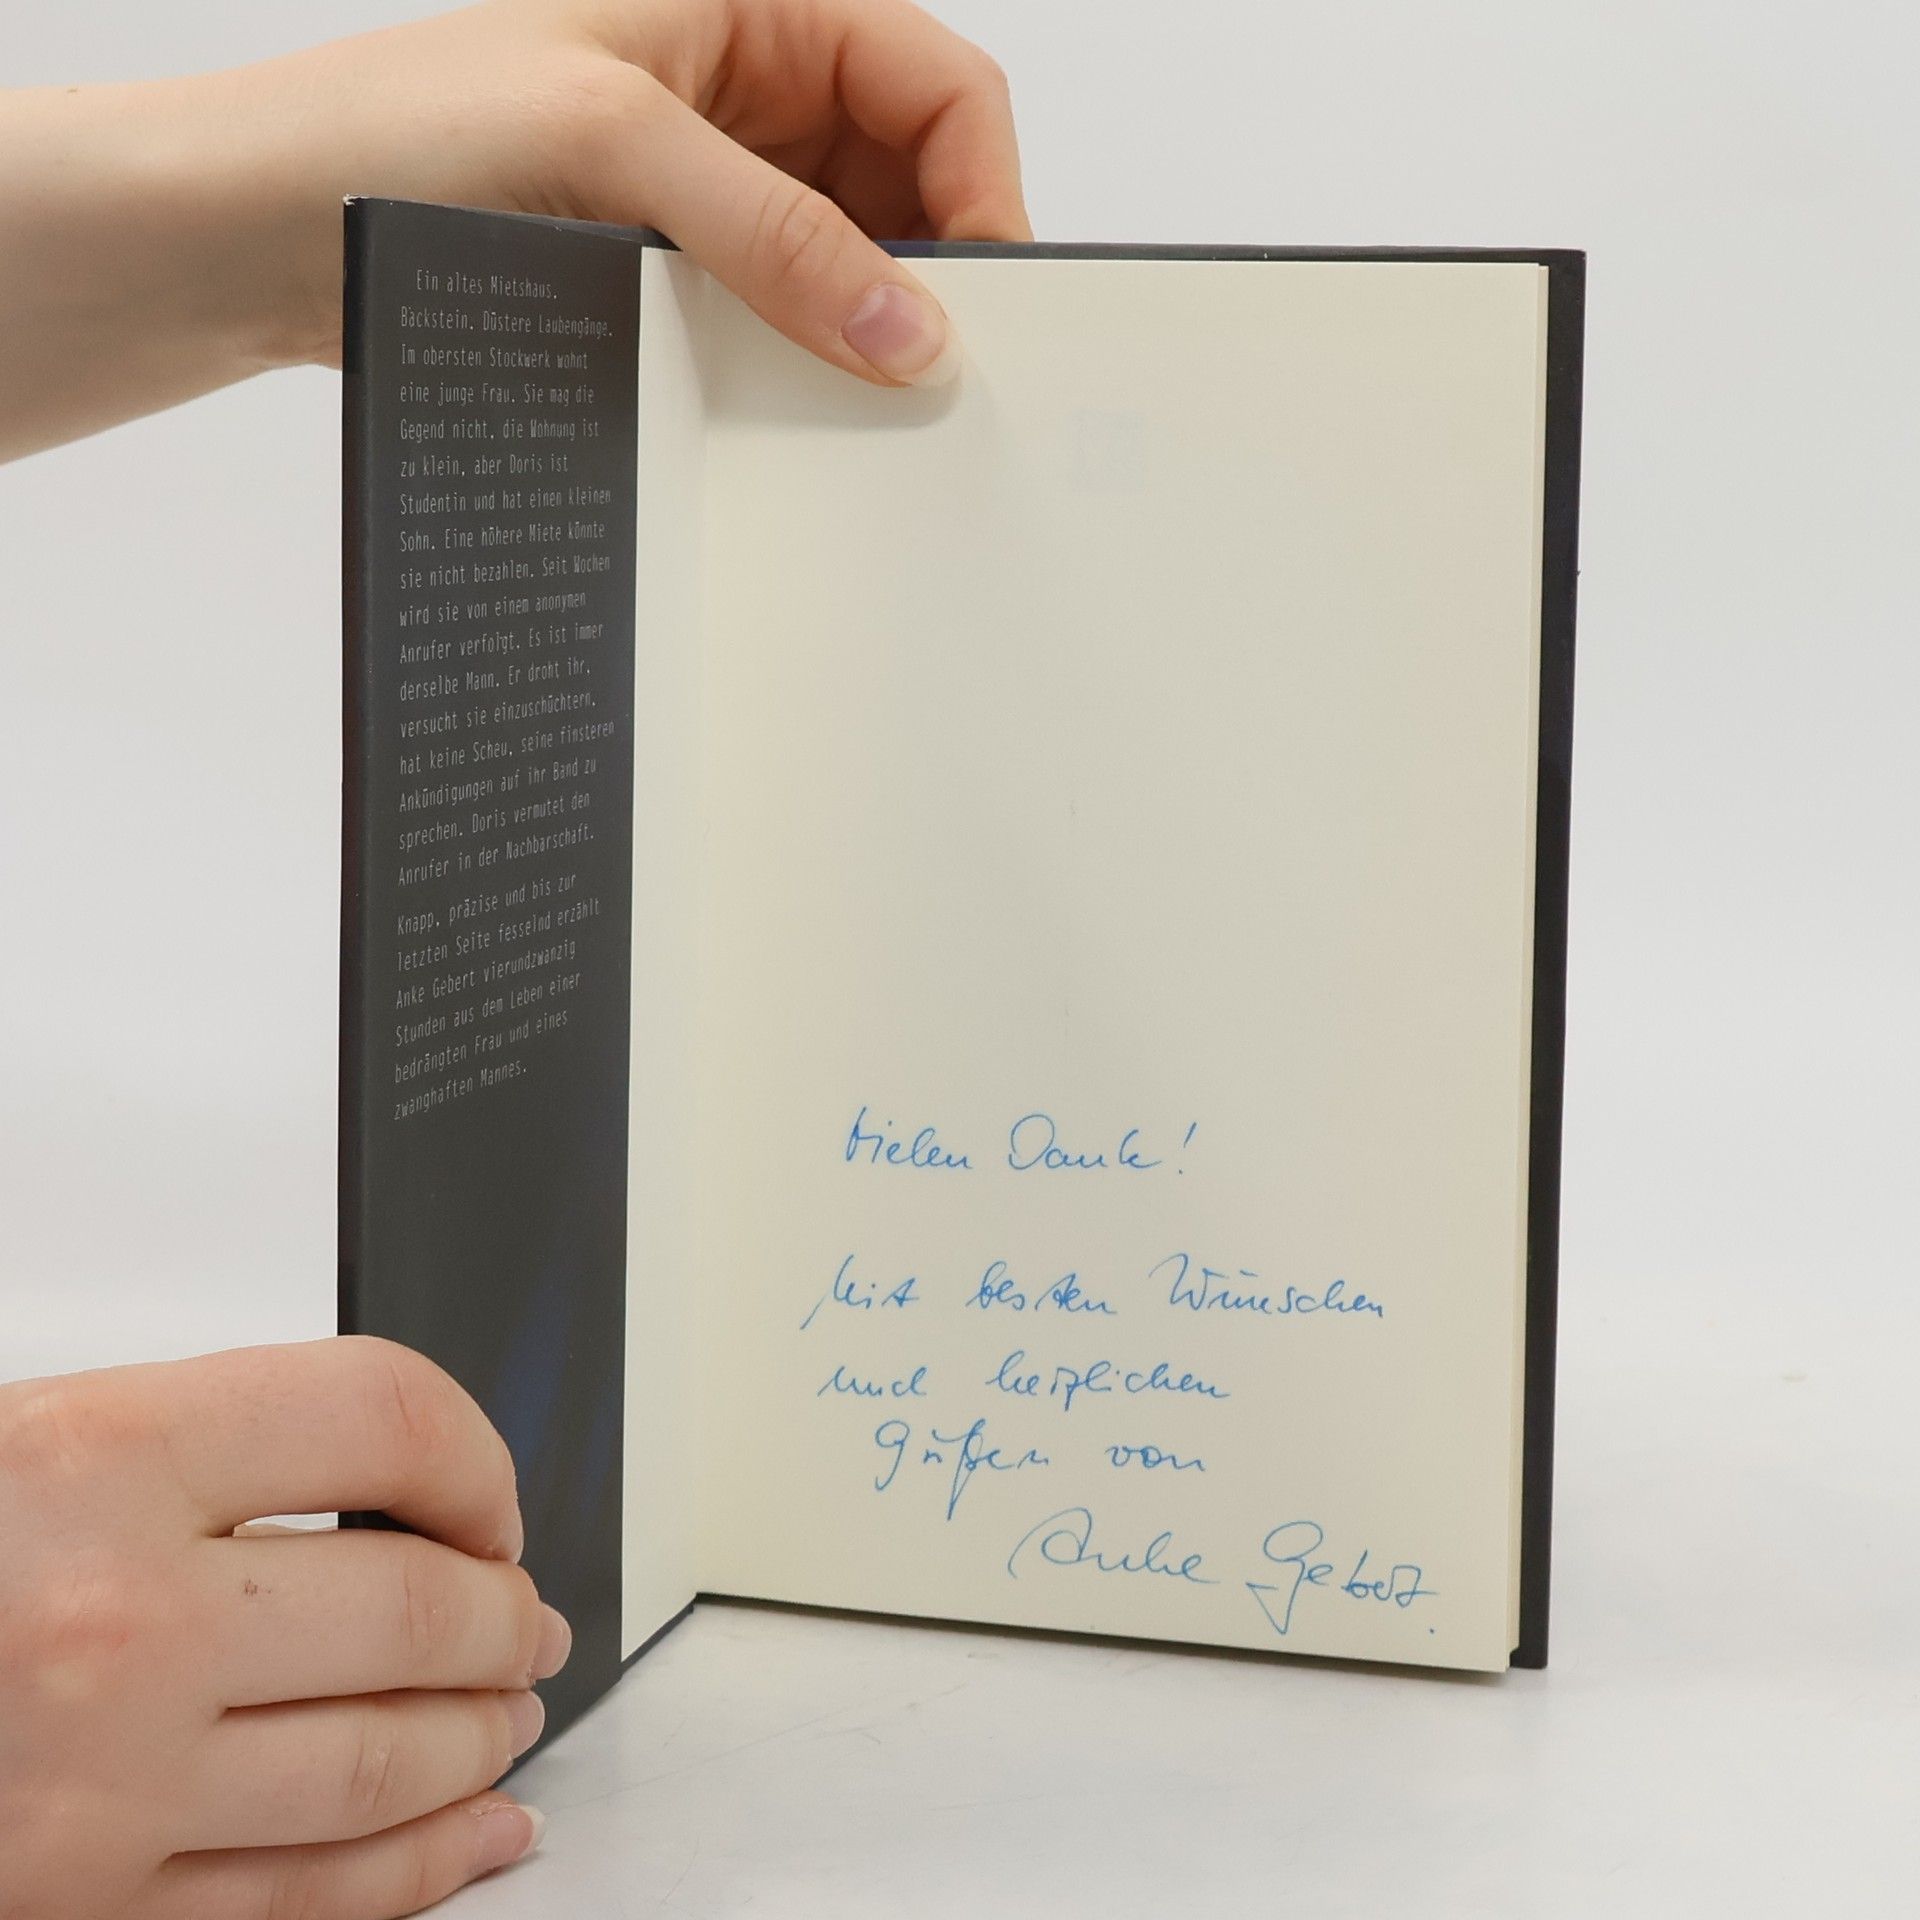 Ein altes Mietshaus.
Backstein. Düstere Laubengänge.
Im obersten Stockwerk wohnt
eine junge Frau. Sie mag die
Gegend nicht, die Wohnung ist
zu klein, aber Doris ist
Studentin und hat einen kleinen
Sohn. Eine höhere Miete könnte
sie nicht bezahlen. Seit Wochen
wird sie von einem anonymen
Anrufer verfolgt. Es ist immer
derselbe Mann. Er droht ihr,
versucht sie einzuschüchtern,
hat keine Scheu, seine finsteren
Ankündigungen auf ihr Band zu
sprechen. Doris vermutet den
Anrufer in der Nachbarschaft.
Knapp, präzise und bis zur
letzten Seite fesselnd erzählt
Anke Gebert vierundzwanzig
Stunden aus dem Leben einer
bedrängten Frau und eines
zwanghaften Mannes.
Vielen Dank!
Mit besten Wünschen
und herzlichen
Grüßen von
Anke Gebert.